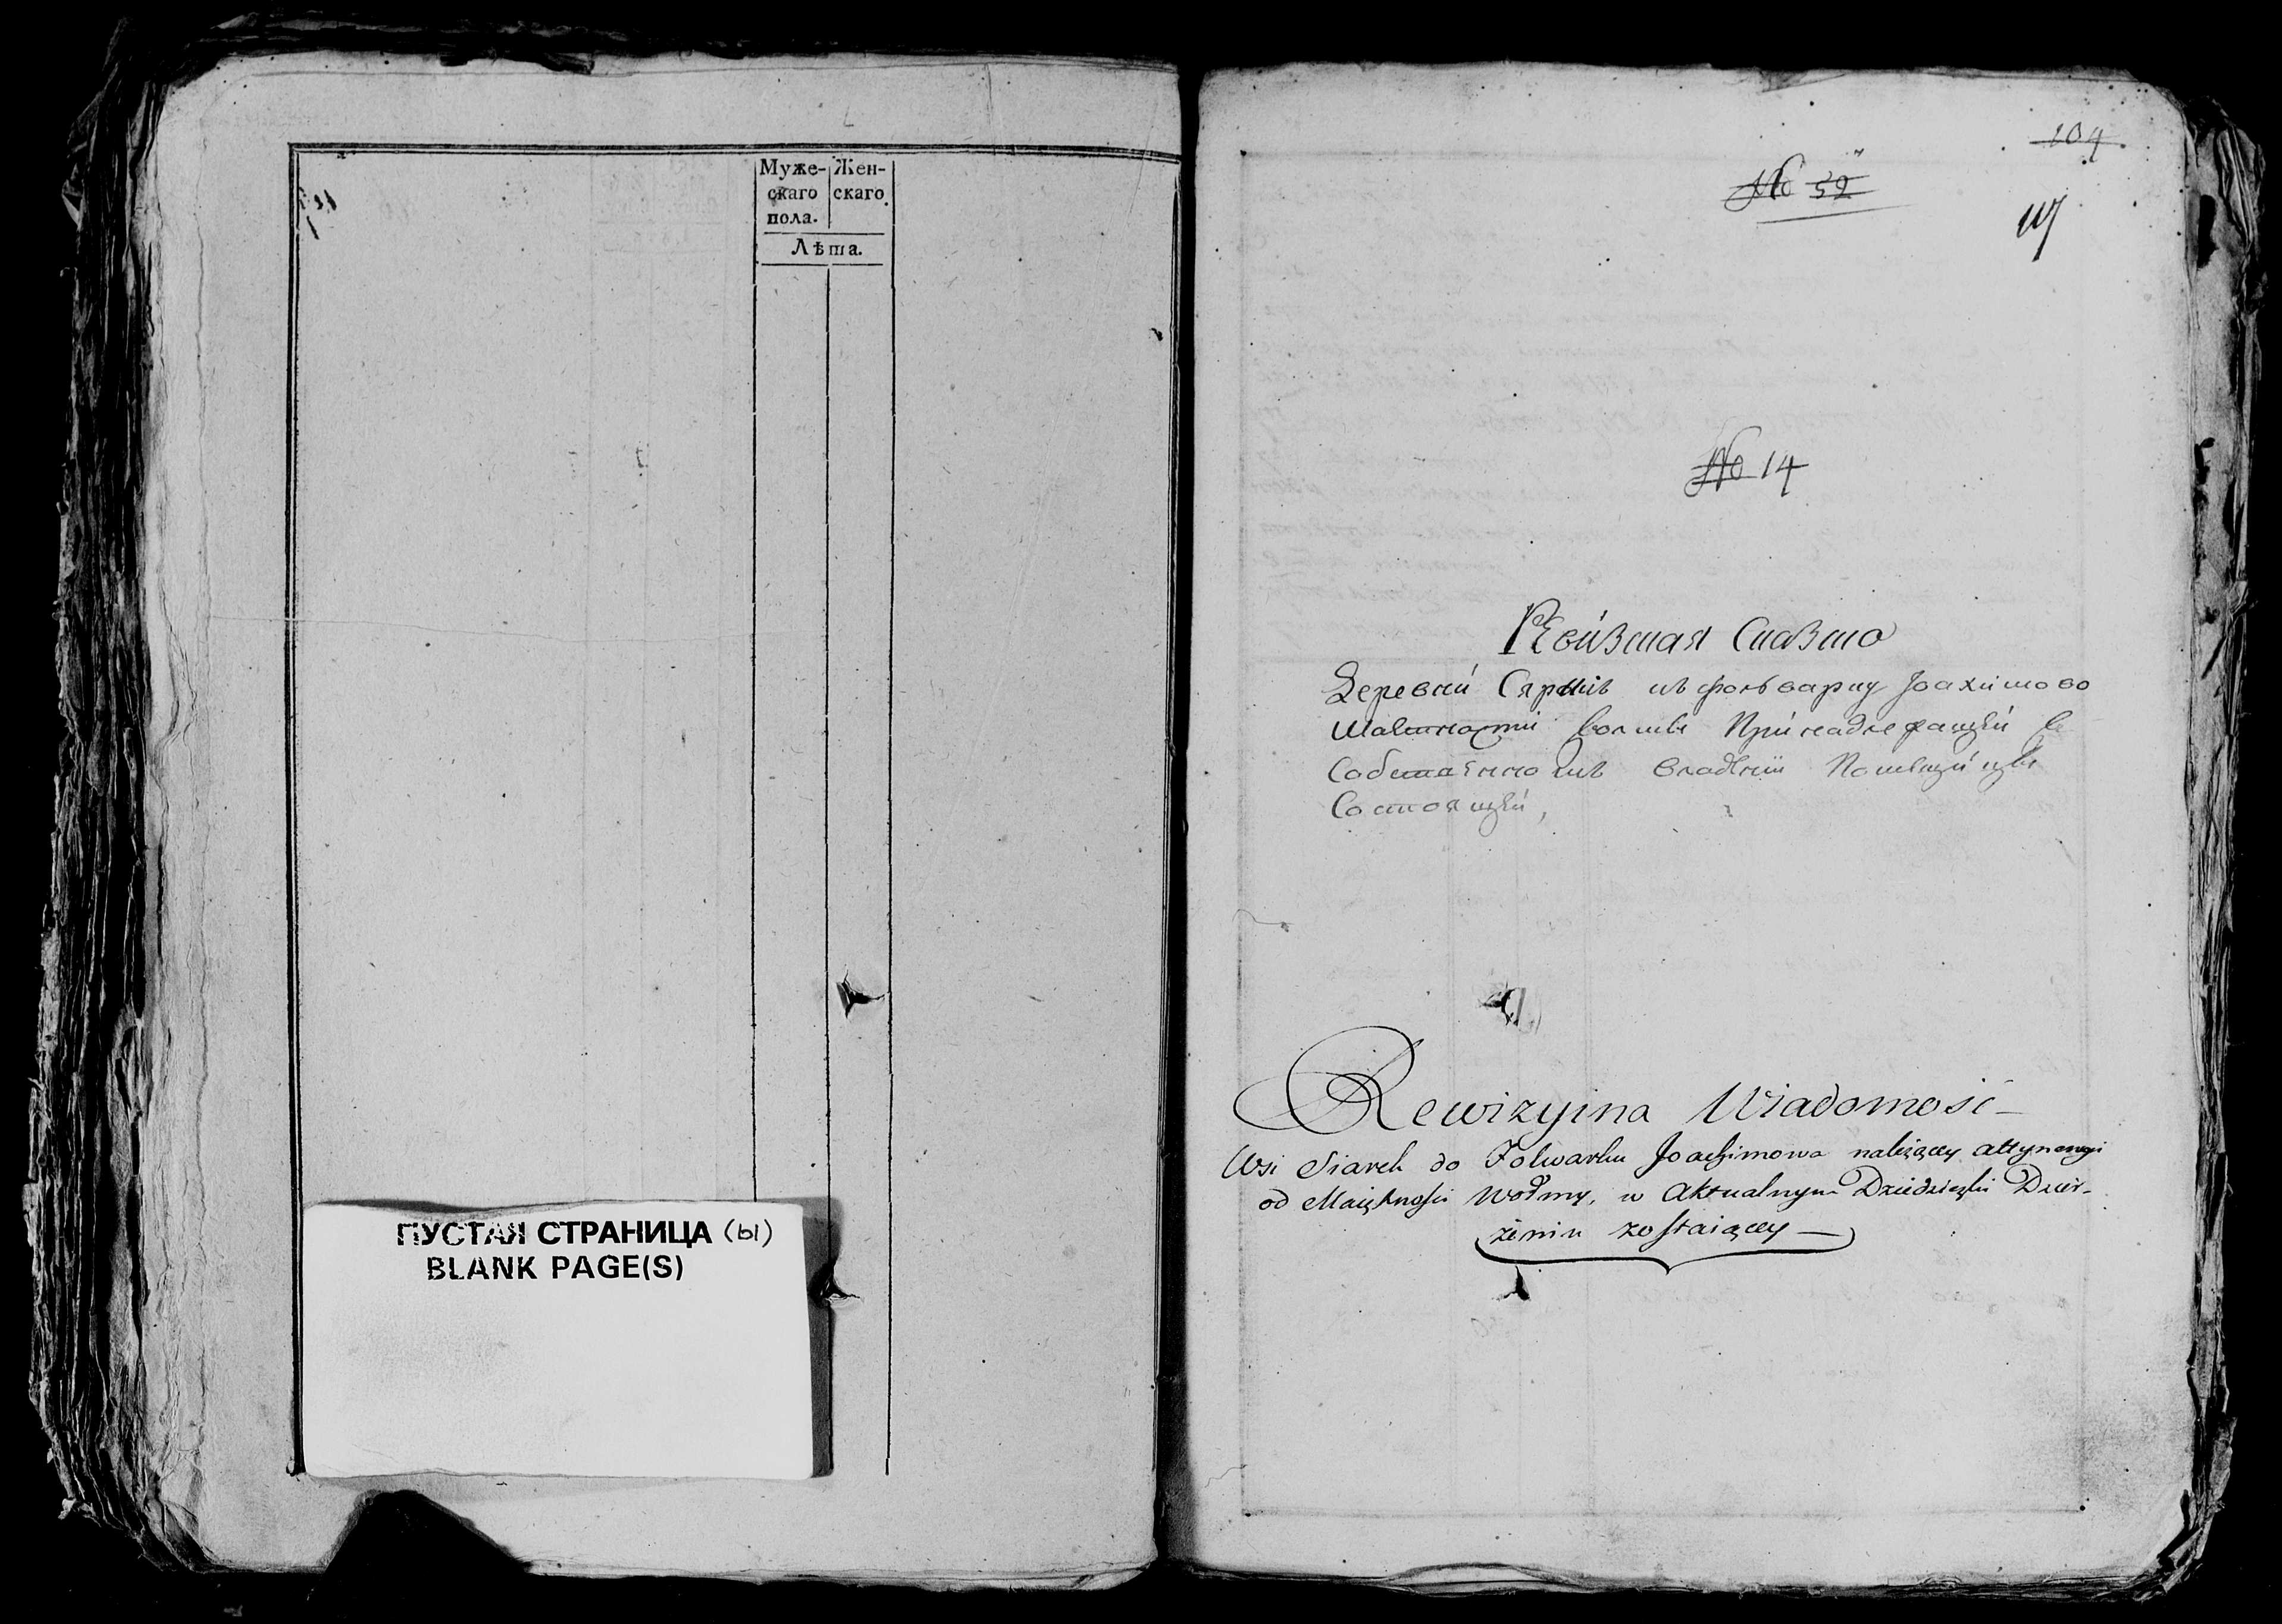 Муже-
скаго
пола.
Жен-
скаго
Лѣта.
ПУСТАЯ СТРАНИЦА (ы)
BLANK PAGE(S)
104
№ 52
№ 14
Ревизная Сказка
Деревни къ фольварку Іоахимово
волны Принадлежащей
владѣнии
Состоящей,
Rewizyina Wiadomość
Wsi Siarek do Folwarku Joachimowa należącey attynencyi
od Maiętności Wodmy, w Aktualnym Dziedzickim Dzier-
żeniu zostaiącey